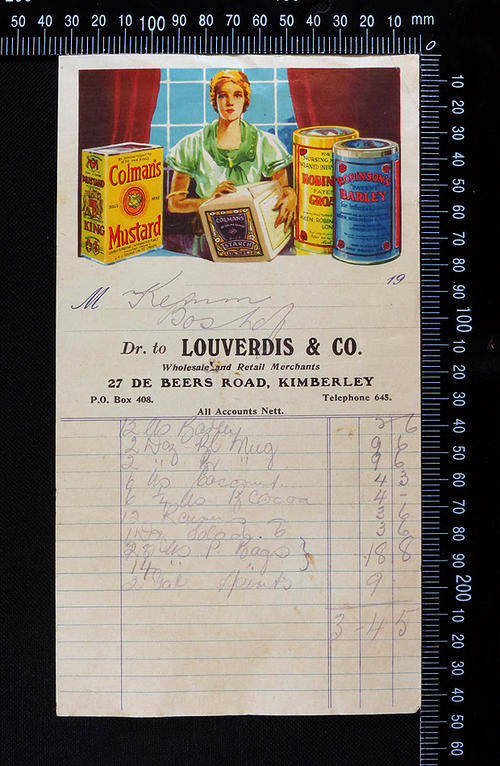 50 40 30 20 10 100 90 80 70 60 50 40 30 20 10 mm
0
Colman's
MUSTARD
KING
Mustard
COLMAN'S
STARCH
ROBINSON'S
PATENT
BARLEY
M Kemm
Boshof
19
Dr. to LOUVERDIS & CO.
Wholesale and Retail Merchants
27 DE BEERS ROAD, KIMBERLEY
P.O. Box 408. Telephone 645.
All Accounts Nett.
12 lbs Barley 3 6
2 Doz Mug 9 6
2 " " 9 6
6 lbs Coconut 4 3
6 ¼ lbs Cocoa 4 -
12 3 6
3 6
28 lbs P. Bags
14 " 18 8
2 Spirits 9
3 - 4 5
10 20 30 40 50 60 70 80 90 100 10 20 30 40 50 60 70 80 90 200 10 20 30 40 50 60